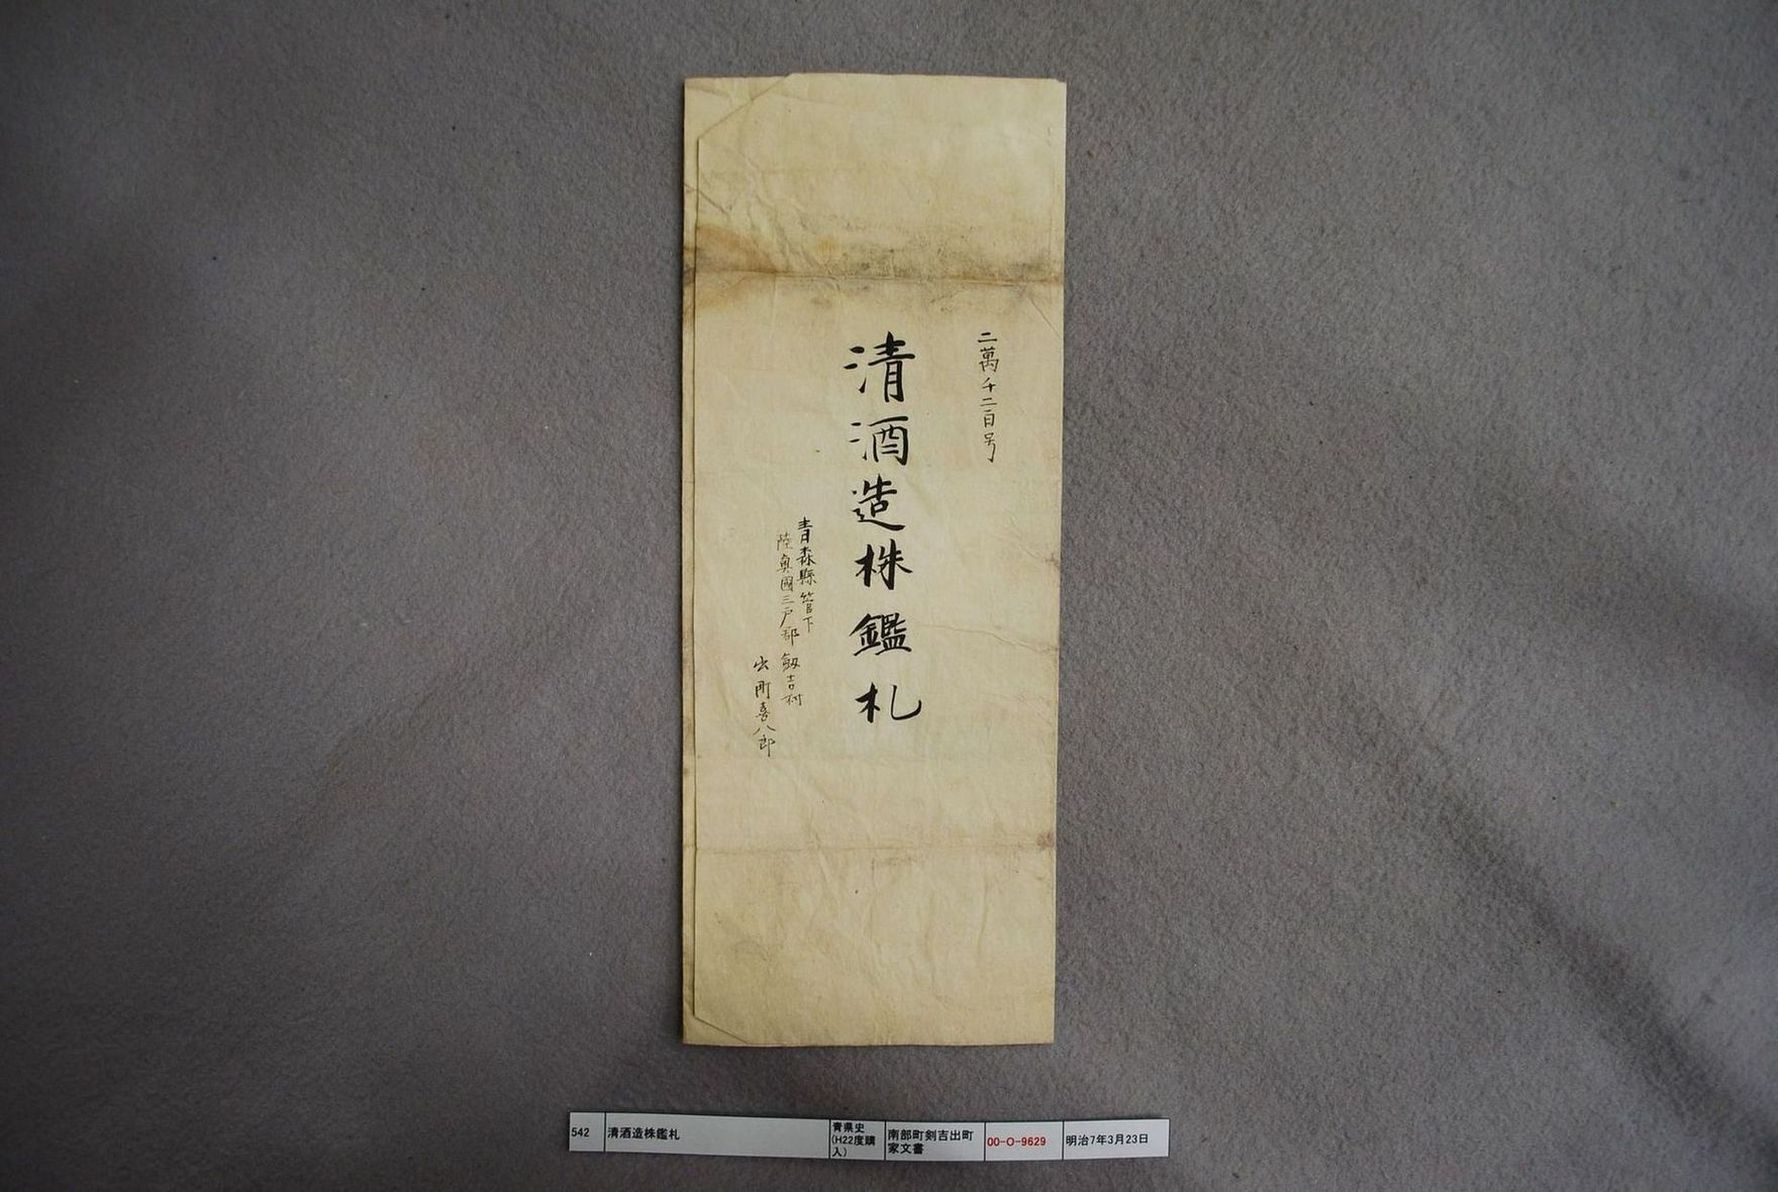 二萬千二百号
清酒造株鑑札
青森縣管下
陸奥國三戸郡剱吉村
出町喜八郎
542
清酒造株鑑札
青県史
(H22度購
入)
南部町剣吉出町
家文書
00-O-9629
明治7年3月23日